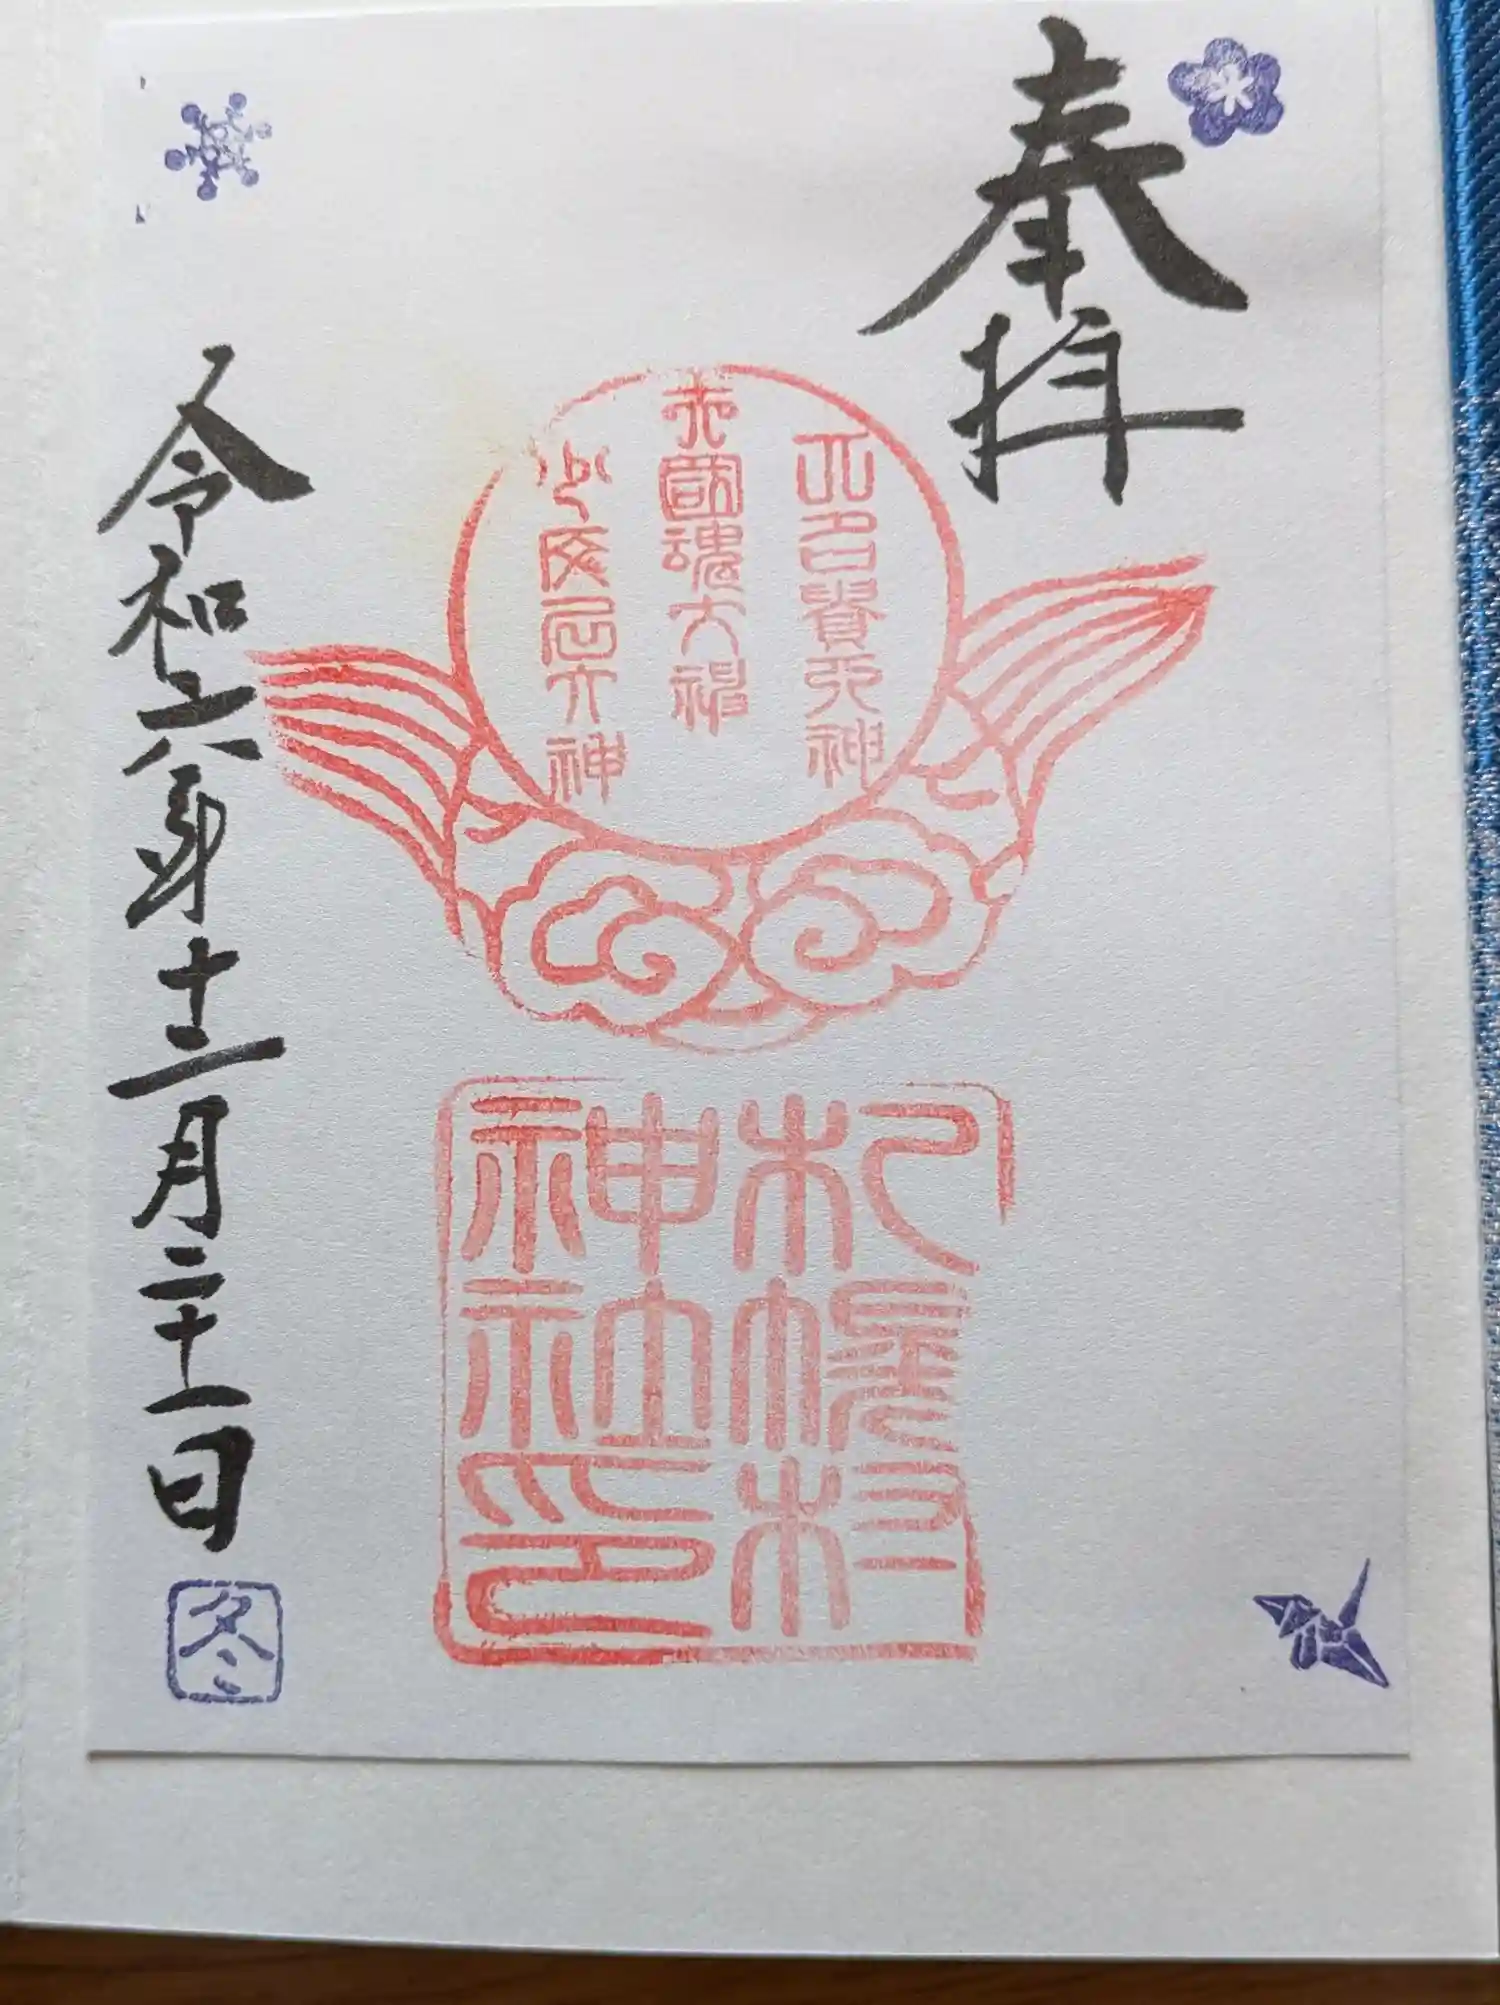 奉拝
大名貴大神
大國魂大神
少彦名大神
札幌村
神社印
令和六年十二月二十一日
冬